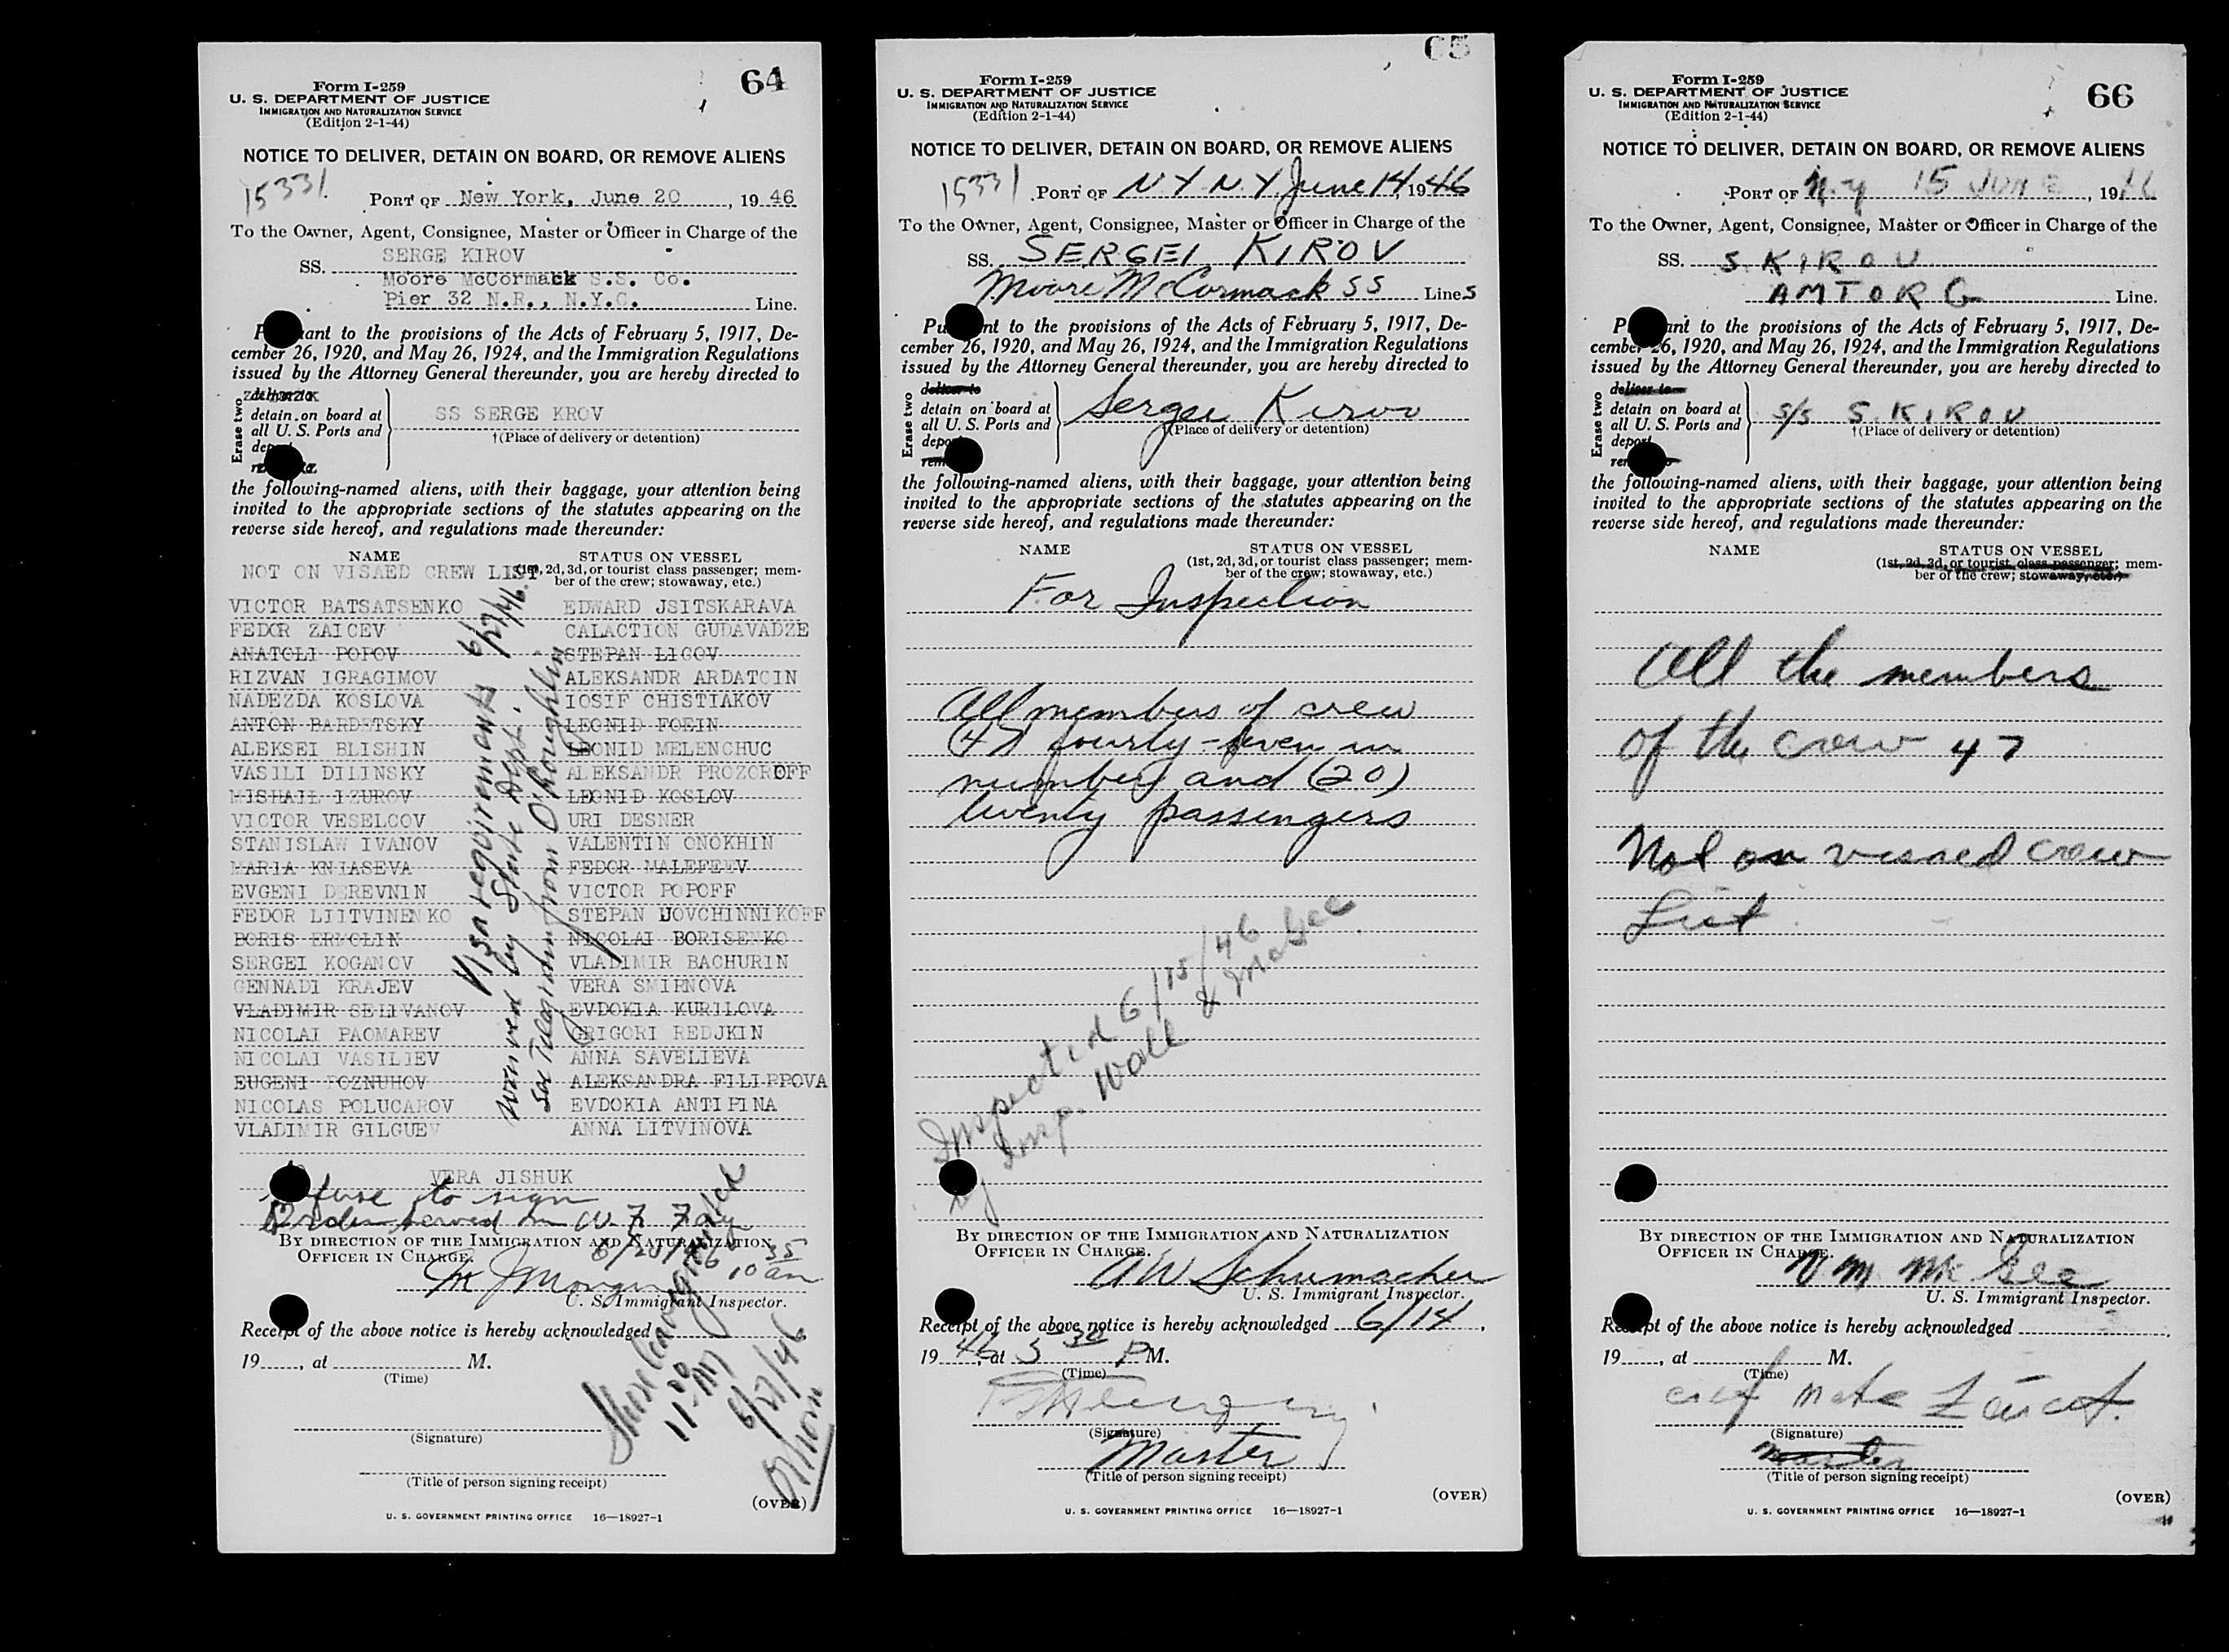 64
Form I-259
U. S. DEPARTMENT OF JUSTICE
IMMIGRATION AND NATURALIZATION SERVICE
(Edition 2-1-44)
NOTICE TO DELIVER, DETAIN ON BOARD, OR REMOVE ALIENS
15331
PORT OF New York, June 20, 19 46
To the Owner, Agent, Consignee, Master or Officer in Charge of the
SERGE KIROV
SS.
Moore McCormack S.S. Co.
Pier 32 N.R., N.Y.C. Line.
ant to the provisions of the Acts of February 5, 1917, De-
cember 26, 1920, and May 26, 1924, and the Immigration Regulations
issued by the Attorney General thereunder, you are hereby directed to
Erase two
detain on board at
all U. S. Ports and
SS SERGE KROV
†(Place of delivery or detention)
the following-named aliens, with their baggage, your attention being
invited to the appropriate sections of the statutes appearing on the
reverse side hereof, and regulations made thereunder:
NAME STATUS ON VESSEL
NOT ON VISAED CREW LIST (1st, 2d, 3d, or tourist class passenger; mem-
ber of the crew; stowaway, etc.)
VICTOR BATSATSENKO EDWARD JSITSKARAVA
FEDOR ZAICEV CALACTION GUDAVADZE
ANATOLI POPOV STEPAN LICOV
RIZVAN IGRAGIMOV ALEKSANDR ARDATCIN
NADEZDA KOSLOVA IOSIF CHISTIAKOV
ANTON BARDETSKY LEONID FOEIN
ALEKSEI BLISHIN LEONID MELENCHUC
VASILI DILINSKY ALEKSANDR PROZOROFF
MISHAIL IZUROV LEONID KOSLOV
VICTOR VESELCOV URI DESNER
STANISLAW IVANOV VALENTIN ONOKHIN
MARIA KNIASEVA FEDOR MALEFEEV
EVGENI DEREVNIN VICTOR POPOFF
FEDOR LIITVINENKO STEPAN UOVCHINNIKOFF
BORIS ERMOLIN NICOLAI BORISENKO
SERGEI KOGANOV VLADIMIR BACHURIN
GENNADI KRAJEV VERA SMIRNOVA
VLADIMIR SELIVANOV EVDOKIA KURILOVA
NICOLAI PAOMAREV GRIGORI REDJKIN
NICOLAI VASILIEV ANNA SAVELIEVA
EUGENI POZNUHOV ALEKSANDRA FILIPPOVA
NICOLAS POLUCAROV EVDOKIA ANTIPINA
VLADIMIR GILGUEV ANNA LITVINOVA
VERA JISHUK
Visa requirements 6/27/46.
waived by State Dept.
See Telegram from O'Loughlin
to sign
Order served on W. F. Fay
BY DIRECTION OF THE IMMIGRATION AND NATURALIZATION
OFFICER IN CHARGE. 6/20/46 10 35 am
U. S. Immigrant Inspector.
Receipt of the above notice is hereby acknowledged
19, at M.
(Time)
11:30 AM
6/27/46
(Signature)
(Title of person signing receipt)
(OVER)
U. S. GOVERNMENT PRINTING OFFICE 16—18927-1
65
Form I-259
U. S. DEPARTMENT OF JUSTICE
IMMIGRATION AND NATURALIZATION SERVICE
(Edition 2-1-44)
NOTICE TO DELIVER, DETAIN ON BOARD, OR REMOVE ALIENS
15331
PORT OF N Y N.Y. June 14, 19 46
To the Owner, Agent, Consignee, Master or Officer in Charge of the
SS. SERGEI KIROV
Moore McCormack SS Lines
Pu nt to the provisions of the Acts of February 5, 1917, De-
cember 26, 1920, and May 26, 1924, and the Immigration Regulations
issued by the Attorney General thereunder, you are hereby directed to
Erase two
deliver to
detain on board at
all U. S. Ports and
Sergei Kirov
†(Place of delivery or detention)
the following-named aliens, with their baggage, your attention being
invited to the appropriate sections of the statutes appearing on the
reverse side hereof, and regulations made thereunder:
NAME STATUS ON VESSEL
(1st, 2d, 3d, or tourist class passenger; mem-
ber of the crew; stowaway, etc.)
For Inspection
All members of crew
(47) fourty-seven in
number and (20)
twenty passengers
Inspected 6/15/46
by Insp. Wall & McGee
BY DIRECTION OF THE IMMIGRATION AND NATURALIZATION
OFFICER IN CHARGE.
A W Schumacher
U. S. Immigrant Inspector.
Receipt of the above notice is hereby acknowledged 6/14,
19 46, at 5 30 P M.
(Time)
(Signature)
Master
(Title of person signing receipt)
(OVER)
U. S. GOVERNMENT PRINTING OFFICE 16—18927-1
66
Form I-259
U. S. DEPARTMENT OF JUSTICE
IMMIGRATION AND NATURALIZATION SERVICE
(Edition 2-1-44)
NOTICE TO DELIVER, DETAIN ON BOARD, OR REMOVE ALIENS
PORT OF N.Y 15 JUNE, 1946
To the Owner, Agent, Consignee, Master or Officer in Charge of the
SS. S. KIROV
AMTORG Line.
P ant to the provisions of the Acts of February 5, 1917, De-
cember 26, 1920, and May 26, 1924, and the Immigration Regulations
issued by the Attorney General thereunder, you are hereby directed to
Erase two
deliver to
detain on board at
all U. S. Ports and
deport
S/S S. KIROV
†(Place of delivery or detention)
the following-named aliens, with their baggage, your attention being
invited to the appropriate sections of the statutes appearing on the
reverse side hereof, and regulations made thereunder:
NAME STATUS ON VESSEL
(1st, 2d, 3d, or tourist class passenger; mem-
ber of the crew; stowaway, etc.)
All the members
of the crew 47
Not on visaed crew
List
BY DIRECTION OF THE IMMIGRATION AND NATURALIZATION
OFFICER IN CHARGE.
V M McGee
U. S. Immigrant Inspector.
Receipt of the above notice is hereby acknowledged
19, at M.
(Time)
mate
(Signature)
Master
(Title of person signing receipt)
(OVER)
U. S. GOVERNMENT PRINTING OFFICE 16—18927-1